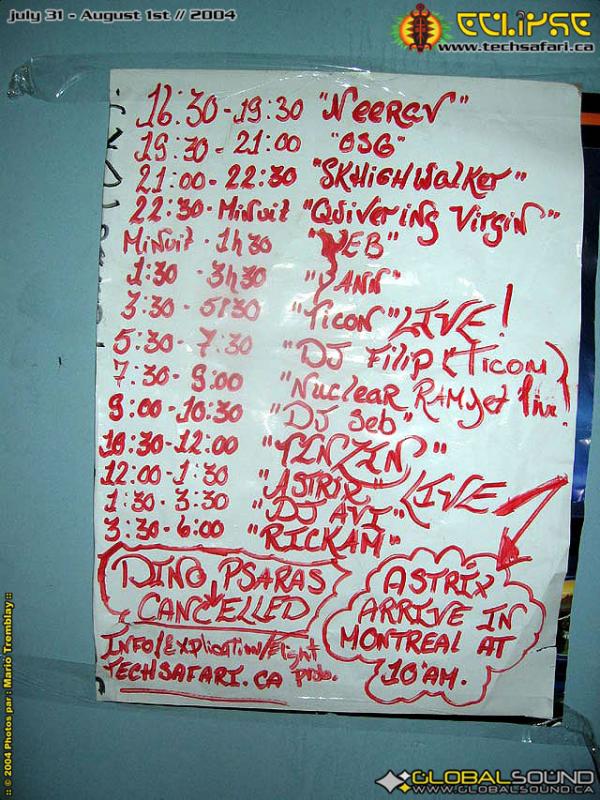 July 31 - August 1st // 2004
ECLIPSE
www.techsafari.ca
16:30 - 19:30 "Neerav"
19:30 - 21:00 "OSG"
21:00 - 22:30 "SKHIGHWalker"
22:30 - Minuit "Quivering Virgin"
Minuit - 1h30 "SEB"
1:30 - 3h30 "YANN"
3:30 - 5:30 "Ticon" LIVE!
5:30 - 7:30 "DJ Filip (Ticon)
7:30 - 9:00 "Nuclear RAMjet live!
9:00 - 10:30 "DJ Seb"
10:30 - 12:00 "TINZIN"
12:00 - 1:30 "ASTRIX" LIVE
1:30 - 3:30 "DJ AVI"
3:30 - 6:00 "RICKAM"
DINO PSARAS
CANCELLED
INFO/EXplication/Flight
prob.
TECHSAFARI.CA
ASTRIX
ARRIVE IN
MONTREAL AT
10 AM.
:: © 2004 Photos par : Mario Tremblay ::
GLOBALSOUND
WWW.GLOBALSOUND.CA